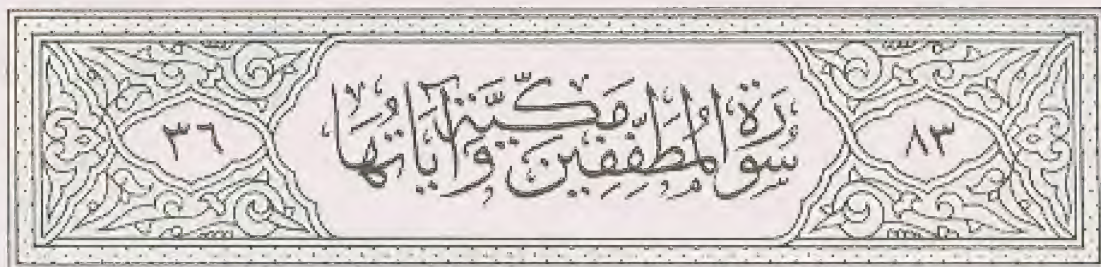 ٨٣
سُورَةُ المُطَفِّفِينَ مَكِّيَّة وَآيَاتُهَا
٣٦